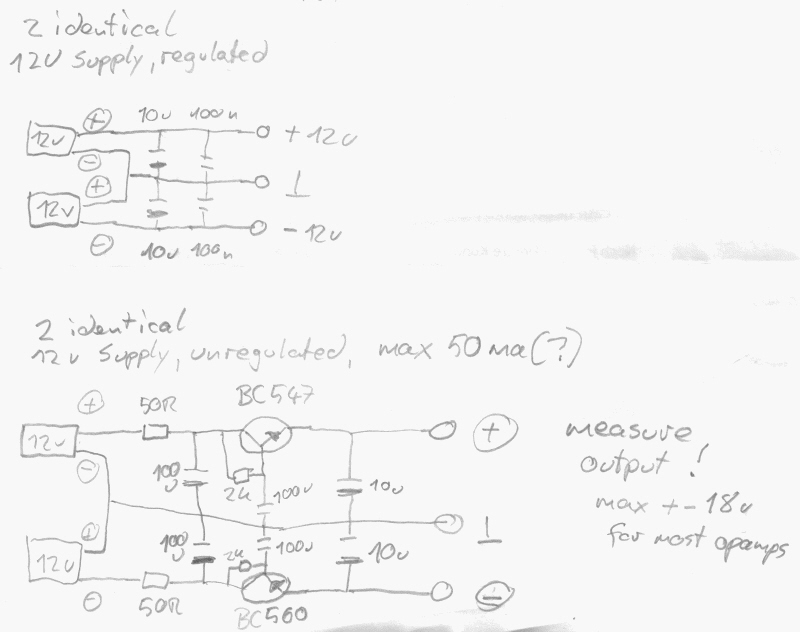 2 identical
12V Supply, regulated
+ 10u 100n
12v + 12v
-
+ ⊥
12v
- - 12v
10u 100n
2 identical
12v Supply, unregulated, max 50ma(?)
+ 50R BC547
12v + measure
- output!
100u 2k 100u 10u max +- 18v
+ ⊥ for most opamps
100u 2k 100u 10u
12v
- 50R BC560 -